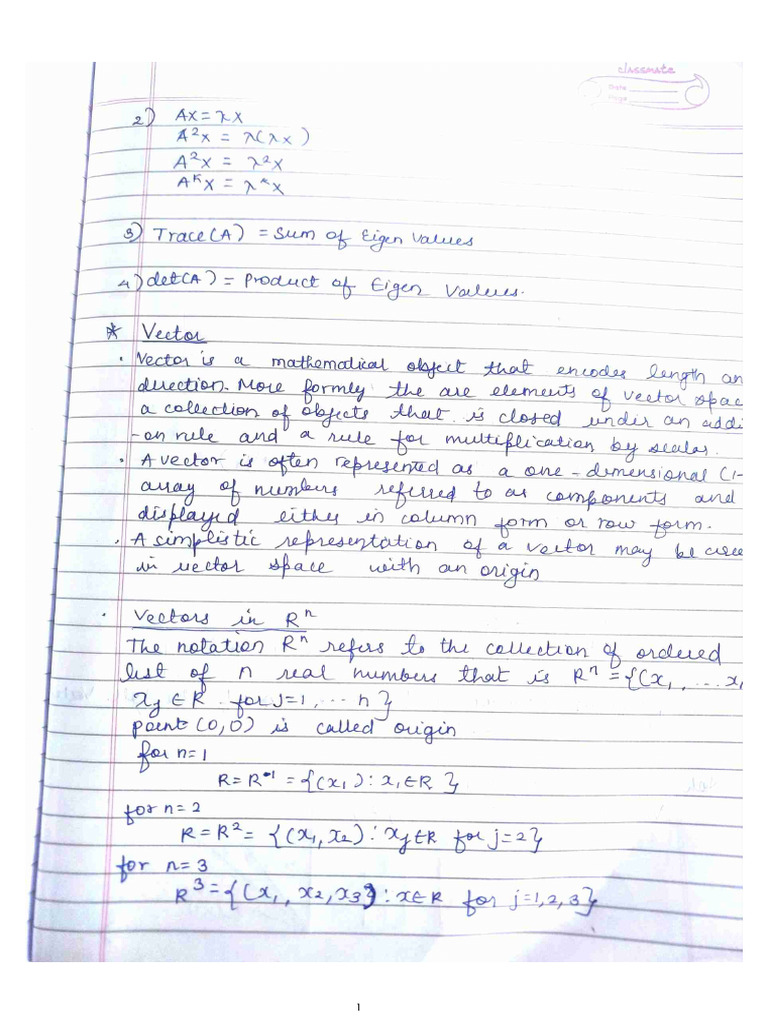 classmate
Date
Page
2) AX = λX
A²X = λ(λX)
A²X = λ²X
AᴷX = λᴷX
3) Trace(A) = Sum of Eigen Values
4) det(A) = Product of Eigen Values.
* Vector
. Vector is a mathematical object that encodes length an
direction. More formly the are elements of vector spac
a collection of objects that is closed under an addi
-on rule and a rule for multiplication by scalar.
. A vector is often represented as a one-dimensional (1-
array of numbers referred to as components and
displayed either in column form or row form.
. A simplistic representation of a vector may be
in vector space with an origin
. Vectors in Rⁿ
The notation Rⁿ refers to the collection of ordered
list of n real numbers that is Rⁿ = {(x₁, ... x₁
xj ∈ R for j=1, ... n}
point (0,0) is called origin
for n=1
R = R¹ = {(x₁) : x₁ ∈ R}
for n=2
R = R² = {(x₁, x₂) : xj ∈ R for j=2}
for n=3
R³ = {(x₁, x₂, x₃) : x ∈ R for j=1,2,3}
1